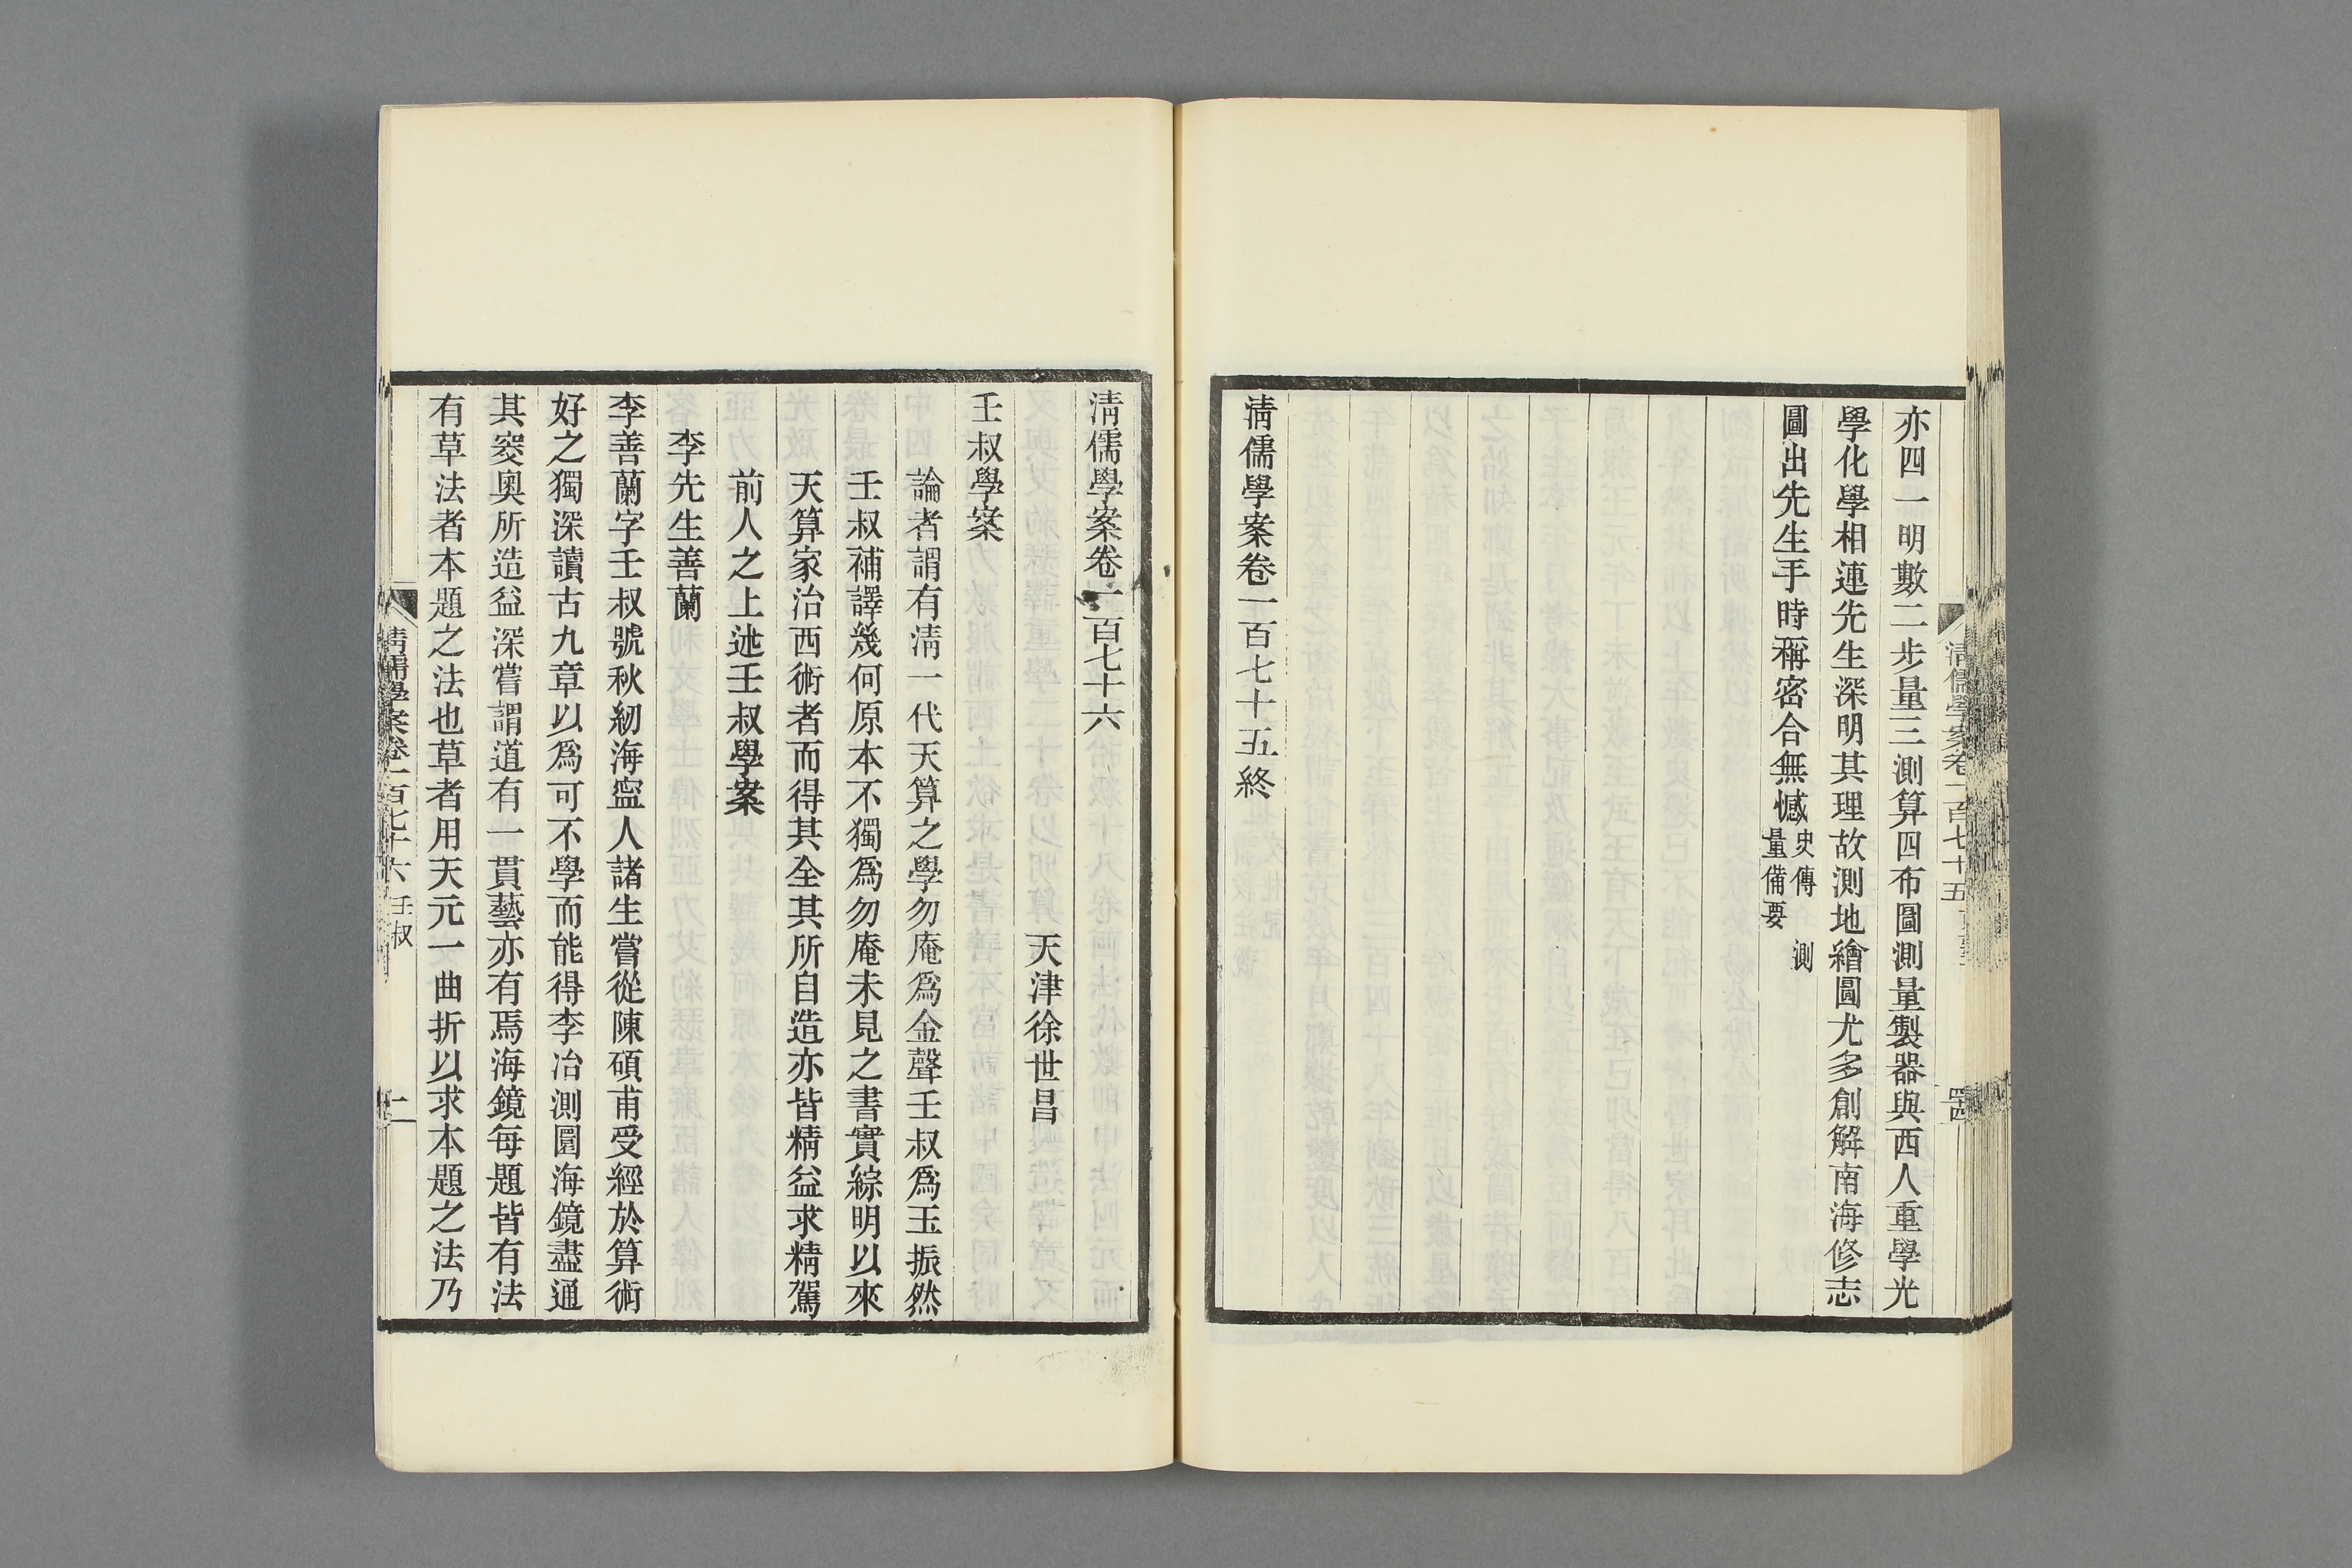 亦四一明數二步量三測算四布圖測量製器與西人重學光
學化學相連先生深明其理故測地繪圖尤多創解南海修志
圖出先生手時稱密合無憾史傳 測
量備要
清儒學案卷一百七十五終
清儒學案卷一百七十五
清儒學案卷一百七十六
天津徐世昌
壬叔學案
論者謂有清一代天算之學勿庵為金聲壬叔為玉振然
壬叔補譯幾何原本不獨為勿庵未見之書實綜明以來
天算家治西術者而得其全其所自造亦皆精益求精駕
前人之上述壬叔學案
李先生善蘭
李善蘭字壬叔號秋紉海寍人諸生嘗從陳碩甫受經於算術
好之獨深讀古九章以為可不學而能得李冶測圓海鏡盡通
其窔奧所造益深嘗謂道有一貫藝亦有焉海鏡每題皆有法
有草法者本題之法也草者用天元一曲折以求本題之法乃
清儒學案卷一百七十六 壬叔